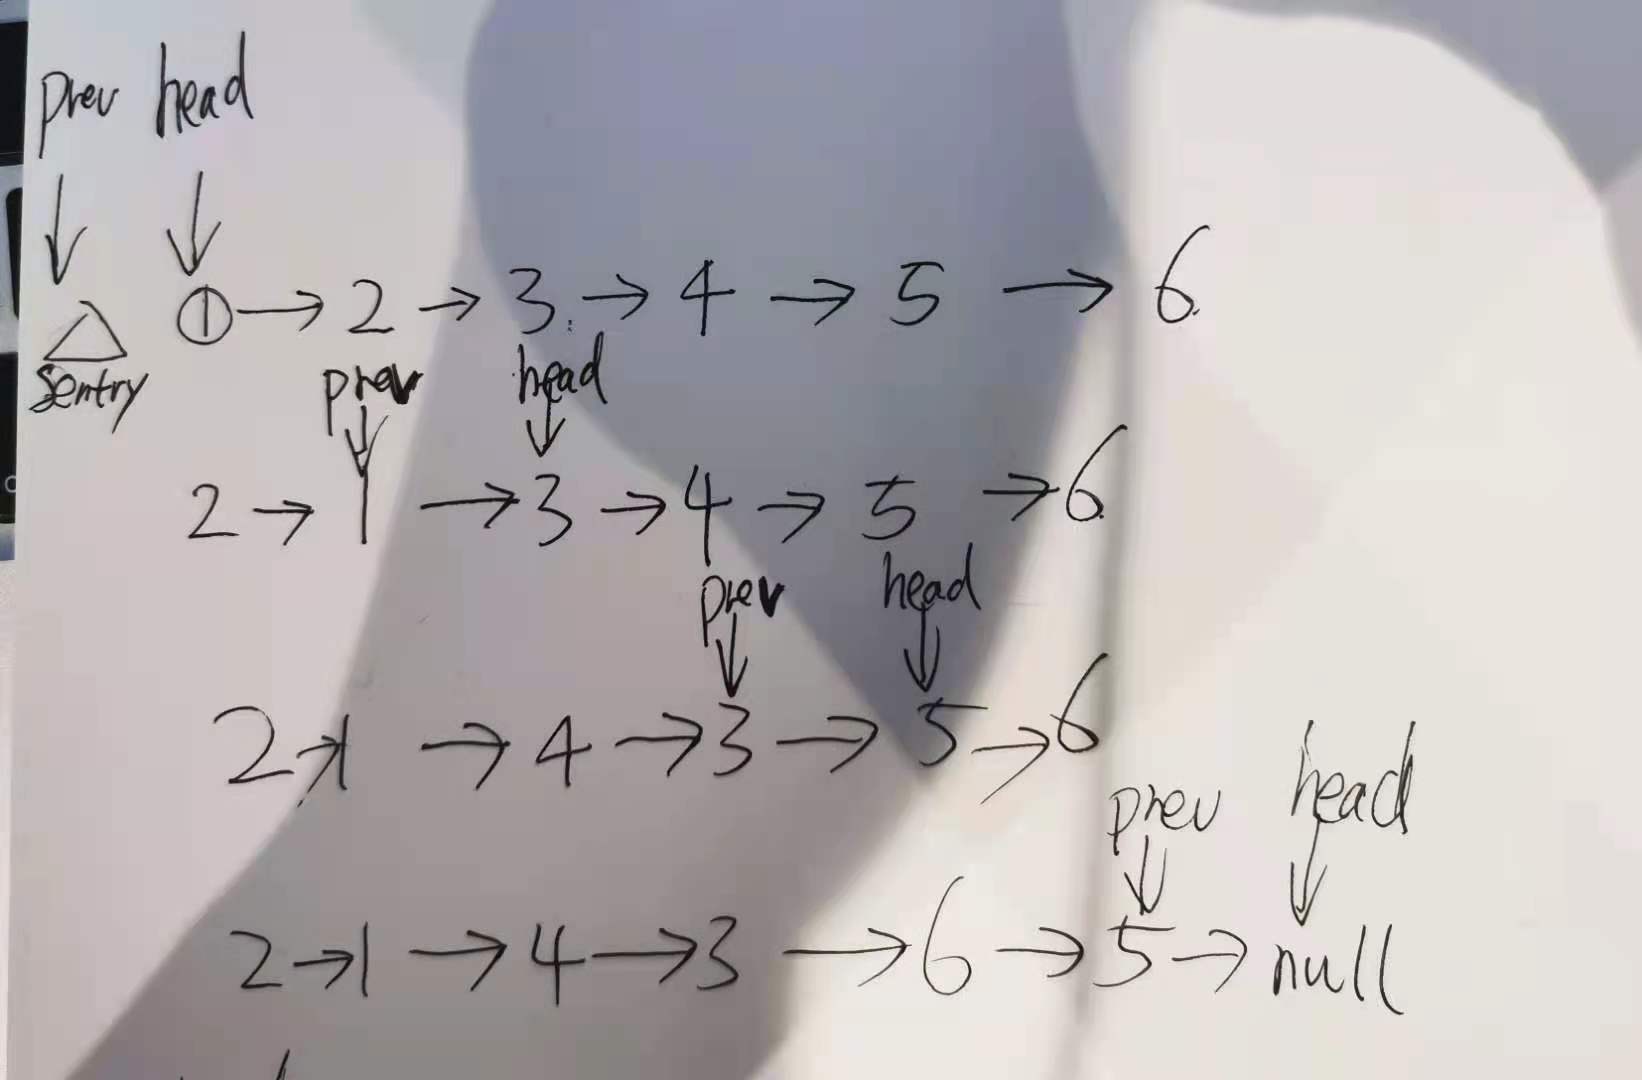 prev head
① → 2 → 3 → 4 → 5 → 6
Sentry prev head
2 → 1 → 3 → 4 → 5 → 6
prev head
2 → 1 → 4 → 3 → 5 → 6
prev head
2 → 1 → 4 → 3 → 6 → 5 → null